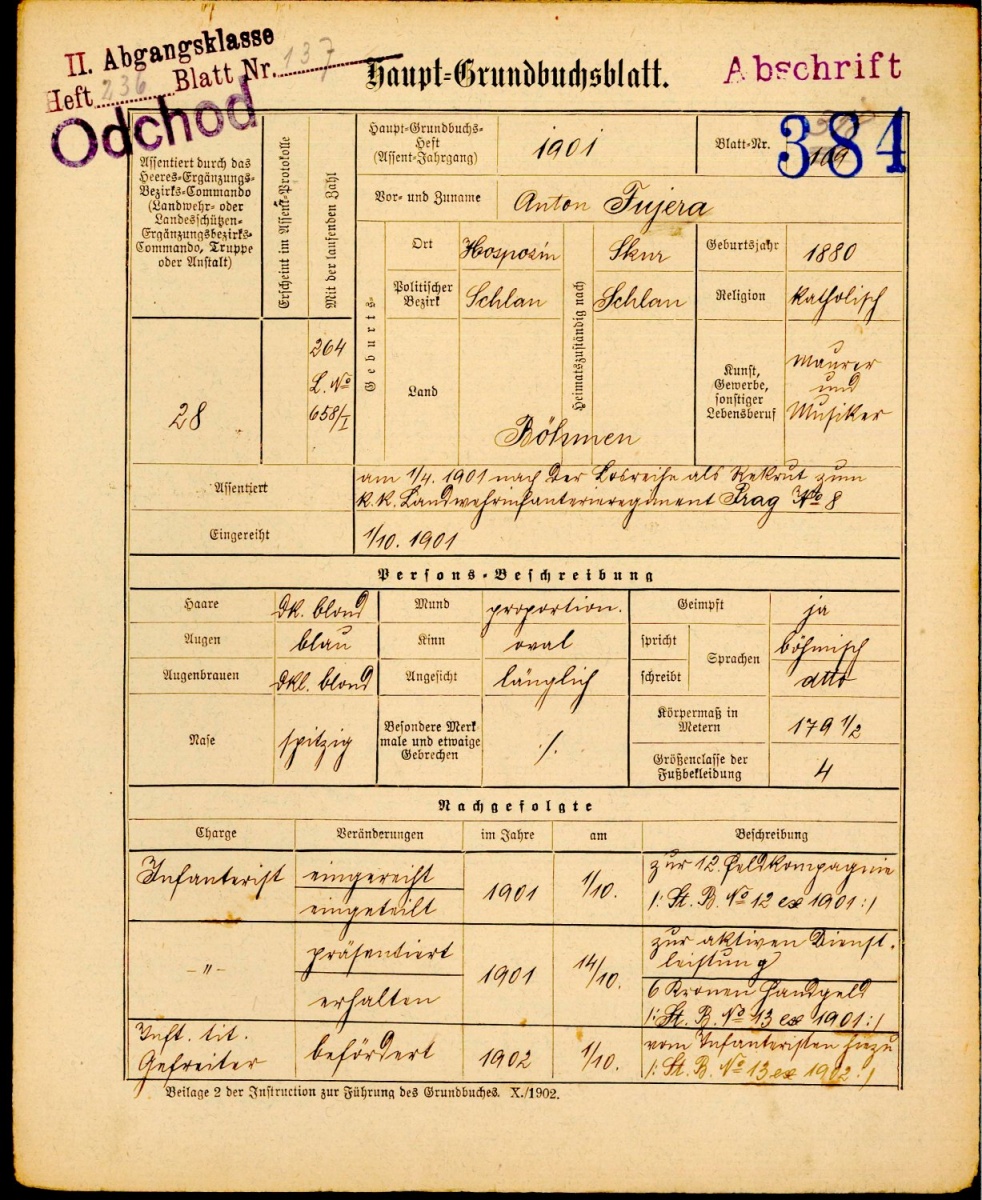 II. Abgangsklasse
Heft 236 Blatt Nr. 137
Odchod
Haupt-Grundbuchsblatt.
Abschrift
Assentiert durch das
Heeres-Ergänzungs-
Bezirks-Commando
(Landwehr- oder
Landesschützen-
Ergänzungsbezirks-
Commando, Truppe
oder Anstalt)
28
Erscheint im Assent-Protokolle
Mit der laufenden Zahl
264
L. No
658/I
Haupt-Grundbuchs-
Heft
(Assent-Jahrgang)
1901
Blatt-Nr.
384
109
Vor- und Zuname
Anton Fujera
Geburts-
Ort
Hospozin
Heimatszuständig nach
Skur
Geburtsjahr
1880
Politischer
Bezirk
Schlan
Schlan
Religion
katholisch
Land
Böhmen
Kunst,
Gewerbe,
sonstiger
Lebensberuf
Maurer
und
Musiker
Assentiert
am 1/4. 1901 nach der Losreihe als Rekrut zum
k. k. Landwehrinfanterieregiment Prag No 8
Eingereiht
1/10. 1901
Persons-Beschreibung
Haare
dk. blond
Mund
proportion.
Geimpft
ja
Augen
blau
Kinn
oval
spricht
Sprachen
böhmisch
Augenbrauen
dkl. blond
Angesicht
länglich
schreibt
dtto
Nase
spitzig
Besondere Merk
male und etwaige
Gebrechen
./.
Körpermaß in
Metern
179 1/2
Größenclasse der
Fußbekleidung
4
Nachgefolgte
Charge
Veränderungen
im Jahre
am
Beschreibung
Infanterist
eingereiht
eingeteilt
1901
1/10.
zur 12. Feldkompagnie
/: St. B. No 12 ex 1901 :/
-"-
präsentiert
erhalten
1901
14/10.
zur aktiven Dienst.
leistung
6 Kronen Handgeld
/: St. B. No 13 ex 1901 :/
Inft. tit.
Gefreiter
befördert
1902
1/10.
vom Infanteristen hiezu
/: St. B. No 13 ex 1902 :/
Beilage 2 der Instruction zur Führung des Grundbuches. X./1902.